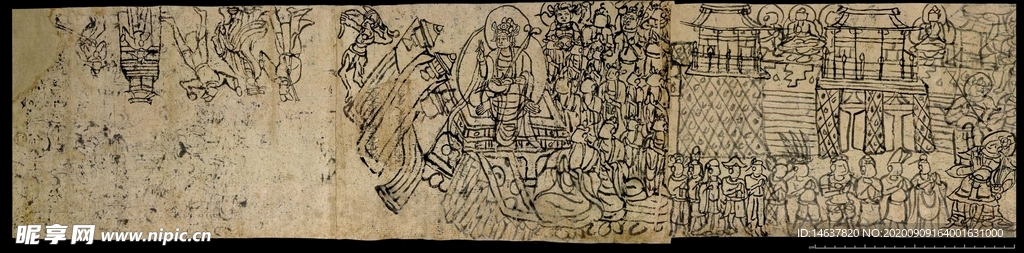 昵享网 www.nipic.cn
ID:14637820 NO:20200909164001631000